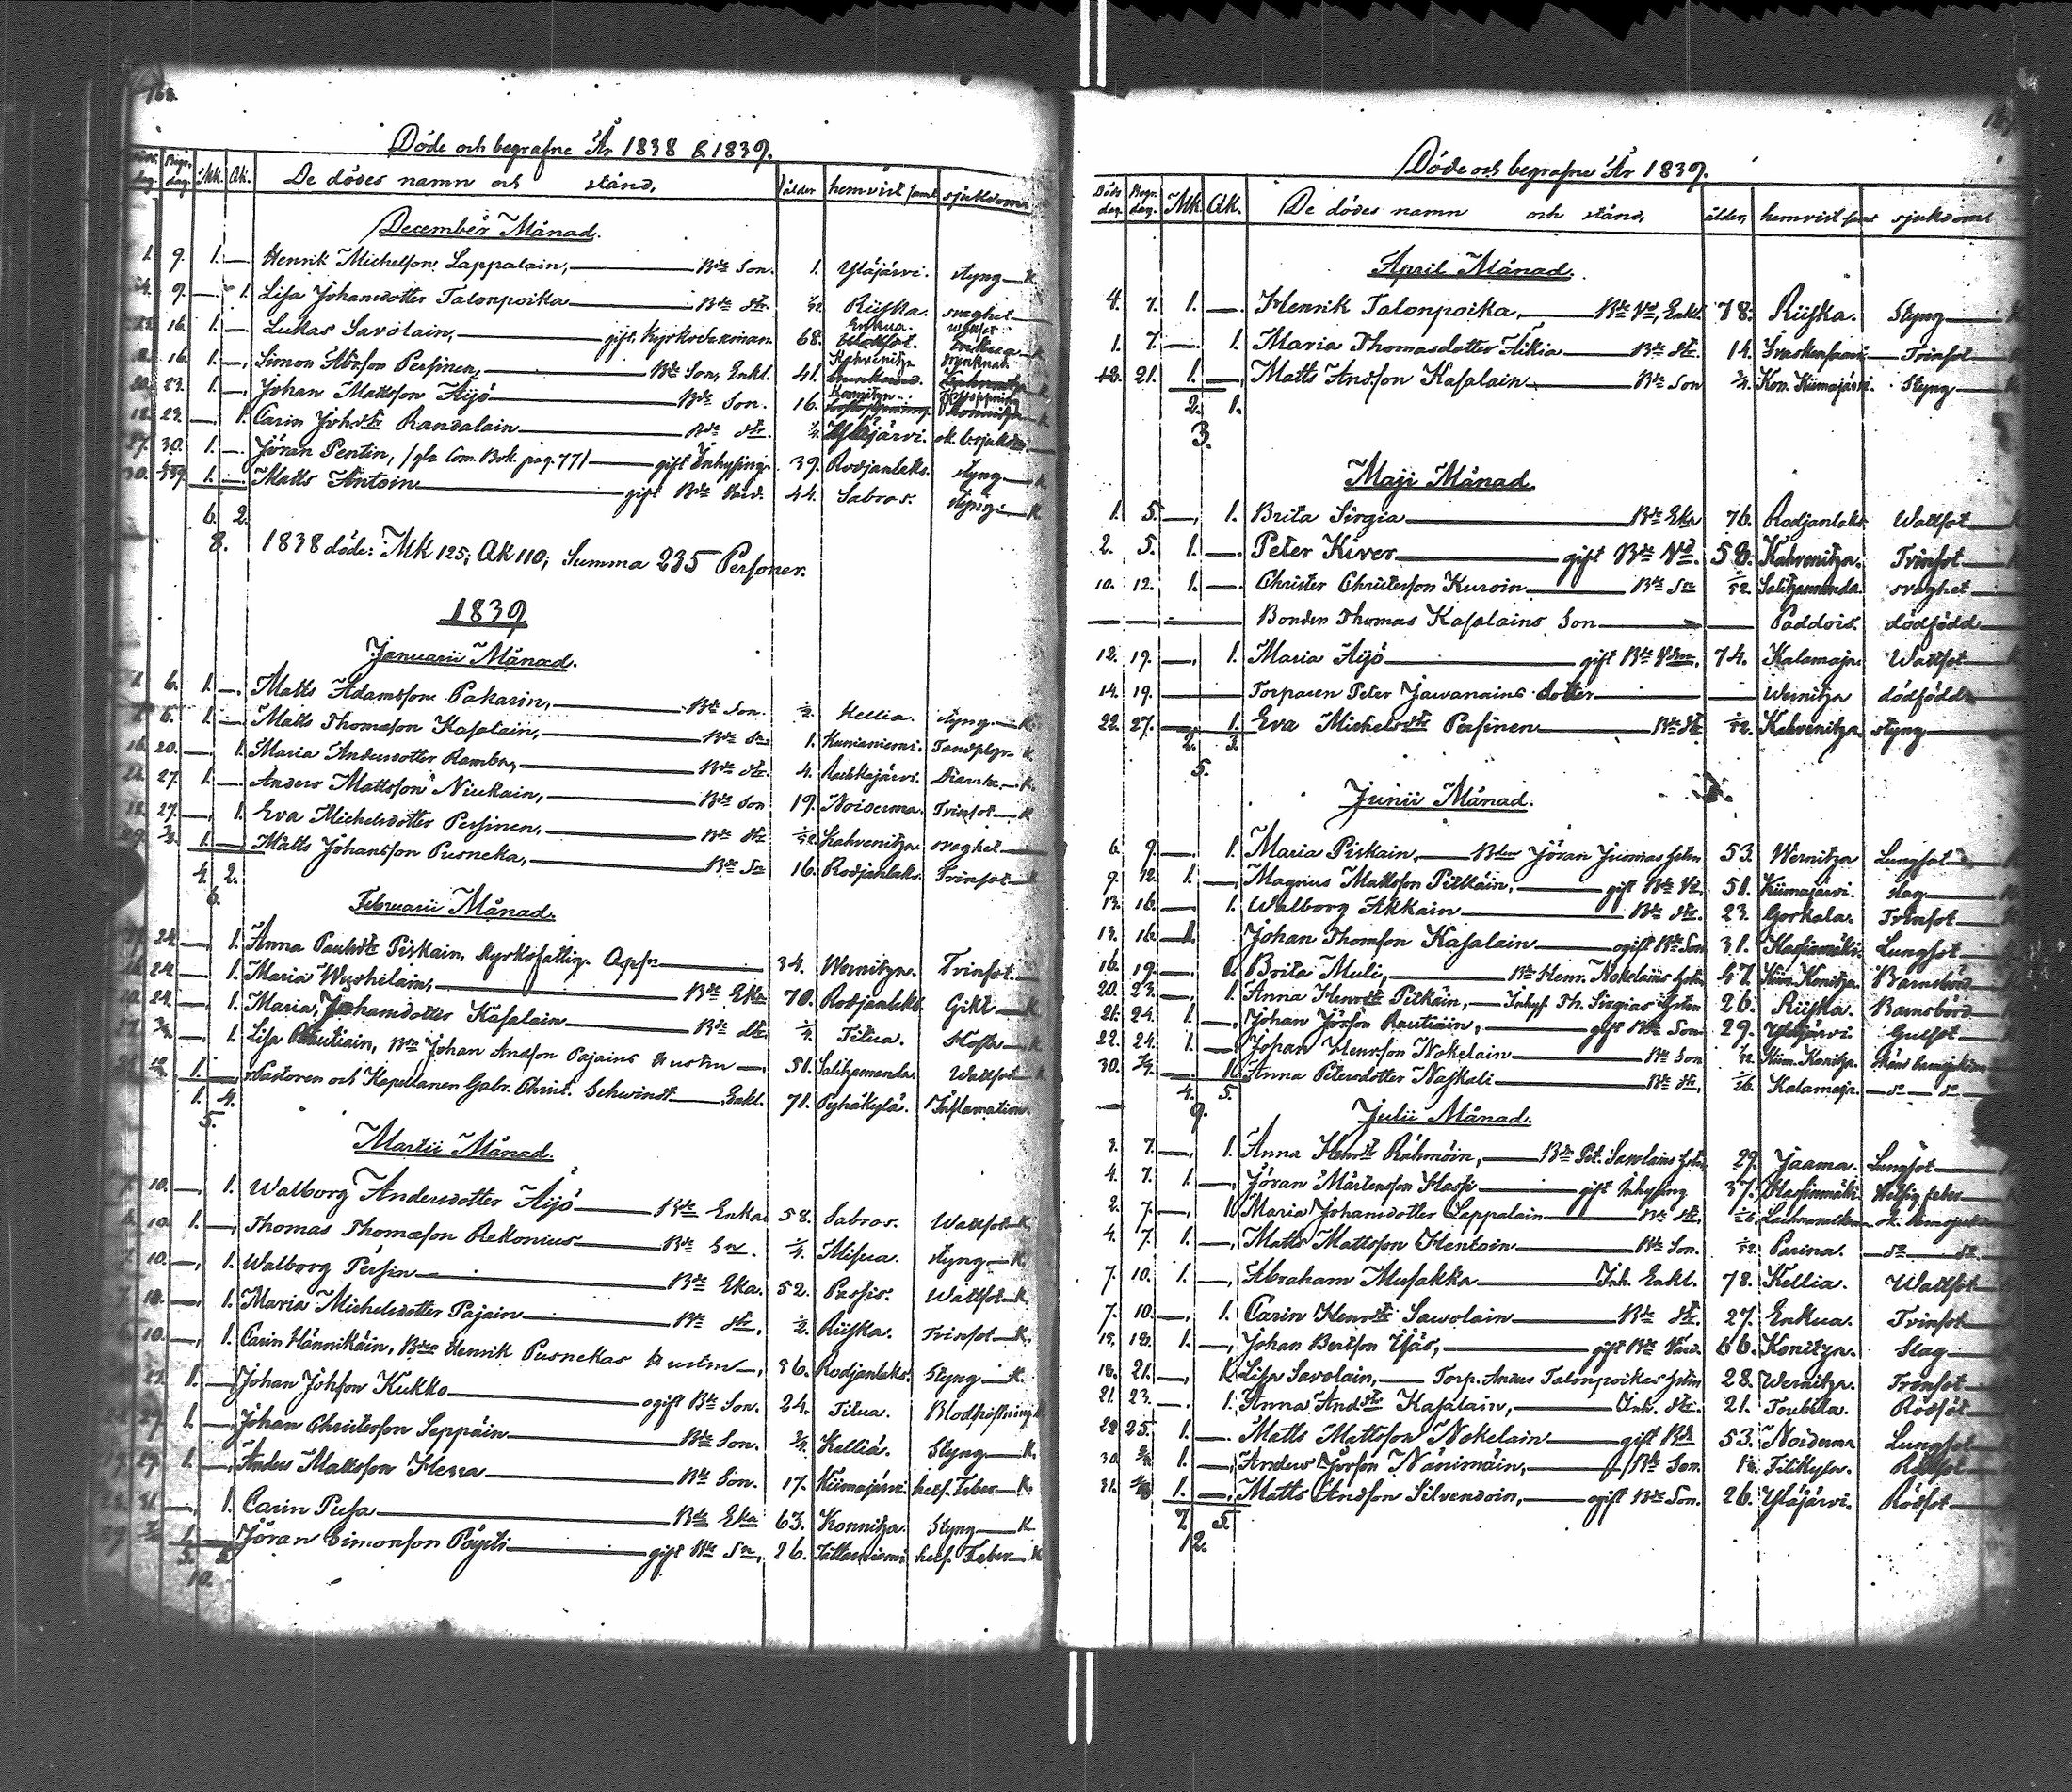 Döde och begrafne År 1838 & 1839.
dag. Begr. dag. Mk. Qk. De dödes namn och stånd, ålder hemvist samt sjukdom
December Månad.
1. 9. 1. — Henrik Michelson Lappalain, Bde Son. 1. Yläjärvi. styng K.
9. — 1. Lisa Johansdotter Talonpoika Bde dtr. Riiska. svaghet
16. 1. — Lukas Savolain, gift, Kyrkovaxman. 68. Enkua.
16. 1. — Simon Abrson Persinen, Bde Son, Enkl. 41. Kahvenitza
23. 1. — Johan Mattsson Äijö Bde Son. 16. Konnitza
23. — 1. Carin Johsdtr Randalain Bde dtr. 1/4 Yläjärvi. ok. bsjukdom
27. 30. 1. — Jöran Pentin, /gla Com. Bok. pag. 77/ gift Inhysing. 39. Rodjanlaks. styng K
30. 1. — Matts Antoin gift Bde Värd. 44. Sabros. styng K
6. 2.
8. 1838 döde: Mk 125; Qk 110; Summa 235 Personer.
1839
Januarii Månad.
1. 6. 1. — Matts Adamsson Pakarin, Bde Son. 1/2. Kellia. styng K.
6. 1. — Matts Thomason Kasalain, Bde Sn 1. Kunianiemi. Tandplgr. K
16. 20. — 1. Maria Andersdotter Ramba, Bde dtr. 4. Rachkajärvi. Diarrhe. K.
27. 1. — Anders Mattsson Niukain, Bde Son 19. Noiderma. Tvinsot K
27. — 1. Eva Michelsdotter Persinen, Bde dtr Kahvenitza. svaghet
1. — Matts Johansson Pusneka, Bde Sn 16. Rodjanlaks. Tvinsot K
4. 2.
6.
Februarii Månad.
24. — 1. Anna Paulsdtr Piskain, Kyrkofattig. 34. Wernitza. Tvinsot
24. — 1. Maria Bde Eka 70. Rodjanlaks. Gikt K
24. — 1. Maria Johansdotter Kasalain Bde dtr. 1/4 Titua. Hosta K
— 1. Lisa Rautiain, Bdn Johan Andson Pajains Hustru 51. Salitzanranda. Wattsot K
1. Pastoren och Kapellanen Gabr. Christ. Schwindt Enkl. 71. Pyhäkylä. Inflamation.
1. 4.
5.
Martii Månad.
10. — 1. Walborg Andersdotter Äijö Bde Enka 58. Sabros. Wattsot K.
10. 1. — Thomas Thomason Rekonius Bde Sn. 1/4. Misua. styng K.
10. — 1. Walborg Persin Bde Eka. 52. Passis. Wattsot K.
10. — 1. Maria Michelsdotter Pajain Bde dtr. 1/2. Riiska. Tvinsot K.
10. — 1. Carin Hännikäin, Bden Henrik Pusnekas Hustru 56. Rodjanlaks. Styng K.
1. — Johan Johsson Kukko ogift Bde Son. 24. Titua. Blodhostning K
1. — Johan Christerson Seppäin Bde Son. 3/4. Kelliä. Styng K.
1. — Anders Mattsson Hessa Bde Son. 17. Kiimajärvi. hets. Feber K.
31. — 1. Carin Pusa Bde Eka 63. Konnitza. Styng K
1. — Jöran Simonson Pöyti gift Bde Sn, 26. Tattarniemi hets. Feber K
10.
Döde och begrafne År 1839.
Döds dag. Begr. dag. Mk. Qk. De dödes namn och stånd, ålder, hemvist samt sjukdom
April Månad.
4. 7. 1. — Henrik Talonpoika, Bde Vd, Enkl. 78. Riiska. Styng
1. 7. — 1. Maria Thomasdotter Äikia Bde dtr. 14. Tvinsot
18. 21. 1. — Matts Andson Kasalain Bde Son 3/4. Kon. Kiimajärvi. Styng
2. 1.
3.
Maji Månad.
1. 5. — 1. Brita Sirgia Bde Eka 76. Rodjanlaks. Wattsot
2. 5. 1. — Peter Kiver gift Bde Vd. 58. Kahvenitza. Tvinsot
10. 12. 1. — Christer Christerson Kuroin Bde Sn Salitzanranda. svaghet
Bonden Thomas Kasalains Son Paddois. dödfödd
12. 19. — 1. Maria Äijö gift Bde Vdna, 74. Kalamaja. Wattsot
14. 19. Torparen Peter Jawanains dotter Wernitza dödfödd
22. 27. — 1. Eva Michelsdtr Persinen Bde dtr Kahvenitza styng
2. 3.
5.
Junii Månad.
6. 9. — 1. Maria Piskain, Bden Jöran Juomas hstru 53. Wernitza Lungsot
9. 12. 1. — Magnus Mattsson Pitkäin, gift Bde Vd. 51. Kiimajärvi. slag
13. 16. — 1. Walborg Akkain Bde dtr. 23. Gorkala. Tvinsot
13. 16. 1. Johan Thomson Kasalain ogift Bde Son 31. Hassinmäki. Lungsot
16. 19. — 1. Brita Muli, Bde Henr. Nokelains hstru 47. Kiim. Konitza. Barnsbörd
20. 23. — 1. Anna Henrsdtr Pitkäin, Inhys. Th. Sirgias hstru 26. Riiska. Barnsbörd
21. 24. 1. — Johan Jörson Rautiain, gift Bde Son 29. Yläjärvi. Gulsot
22. 24. 1. — Johan Henrsson Nokelain Bde Son Kiim. Konitza.
30. — 1. Anna Petersdotter Naskali Bde dtr. Kalamaja. do do
4. 5.
9.
Julii Månad.
3. 7. — 1. Anna Henrsdtr Rähmöin, Bden Pet. Savolains hstru 29. Jaama. Lungsot
4. 7. 1. — Jöran Mårtensson Hassi gift Inhysing 37. Hassinmäki. Hetsig feber
2. 7. — 1. Maria Johansdotter Lappalain Bde dtr.
4. 7. 1. — Matts Mattsson Hentoin Bde Son. Parina. do do
7. 10. 1. — Abraham Musakka Inh. Enkl. 78. Kellia. Wattsot
7. 10. — 1. Carin Henrsdtr Sawolain Bde dtr. 27. Enkua. Tvinsot
15. 18. 1. — Johan Bertson Yläs, gift Bde Värd. 66. Konitza. Slag
18. 21. — 1. Lisa Savolain, Torp. Anders Talonpoikas hstru 28. Wernitza. Tvinsot
21. 23. — 1. Anna Andsdtr Kasalain, Inh. dtr. 21. Toubila. Rödsot
22. 25. 1. — Matts Mattsson Nokelain gift Bde 53. Noiderma Lungsot
30. 1. — Anders Jörson Nänimäin, Bde Son. Tilikyla. Rödsot
31. 1. — Matts Andson Silvendoin, ogift Bde Son. 26. Yläjärvi. Rödsot
7. 5.
12.